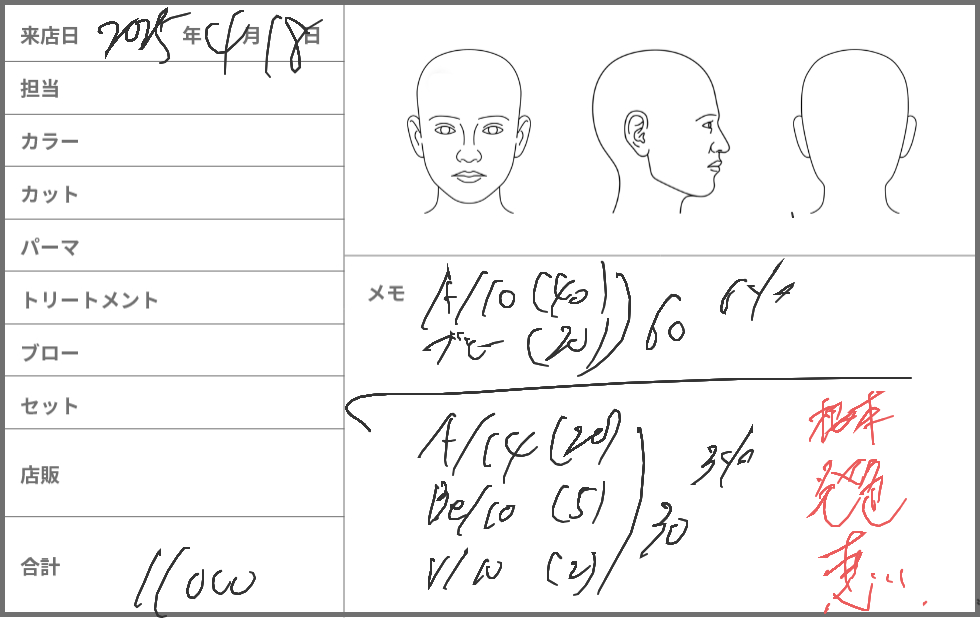 来店日 2025年4月18日
担当
カラー
カット
パーマ
トリートメント
ブロー
セット
店販
合計 11000
メモ
A/10 (40)
(20)
60
6%
A/14 (20)
Be/10 (5)
V/10 (2)
30
3%
根本
発色
悪い